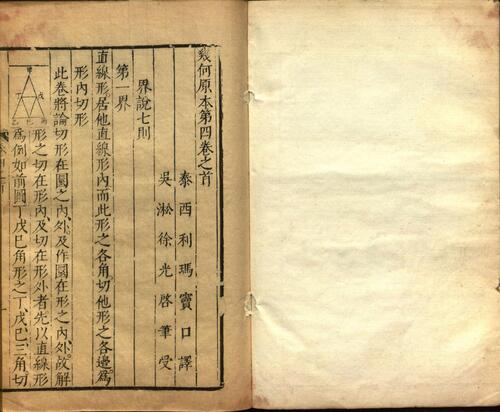 幾何原本第四卷之首
泰西利瑪竇口譯
吳淞徐光啓筆受
界說七則
第一界
直線形居他直線形內而此形之各角切他形之各邊爲
形內切形
此卷將論切形在圜之內外及作圜在形之內外故解
形之切在形內及切在形外者先以直線形
爲例如前圖丁戊己角形之丁戊己三角切